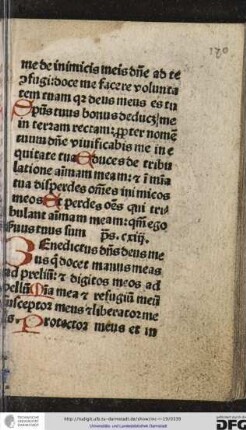 120
me de inimicis meis dn̄e ad te
ꝯfugi: doce me facere volunta
tem tuam qꝛ deus meus es tu
Spūs tuus bonus deducꝫ me
in terram rectam: ꝓpter nomē
tuum dn̄e viuificabis me in e
quitate tua Educes de tribu
latione aīmam meam: ⁊ ī mīa
tua disperdes om̄es inimicos
meos Et perdes oēs qui tri
bulant aīmam meam: qm̄ ego
seruus tuus sum ps. cxiij.
Benedictus dn̄s deus me
us q̇ docet manus meas
ad preliū: ⁊ digitos meos ad
bellū Mīa mea ⁊ refugiū meū
susceptor meus ⁊ liberator me
us. Protector meus et in
http://tudigit.ulb.tu-darmstadt.de/show/inc-
Universitäts- und Landesbibliothek Darmstadt
DFG